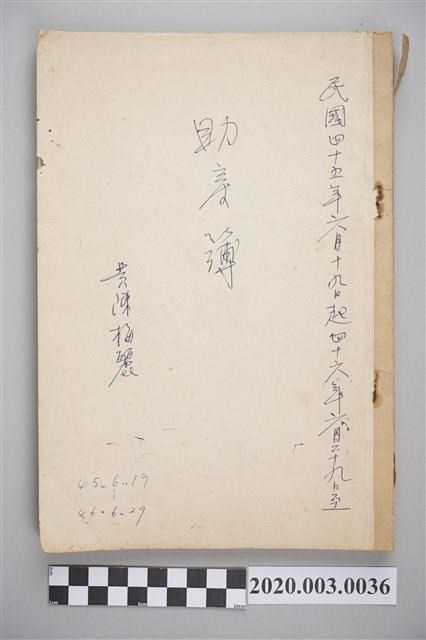 民國四十五年六月十九日起四十六年六月二十九日至
助產簿
黃陳梅麗
45.6.19
46.6.29
2020.003.0036
1cm
5cm
10cm